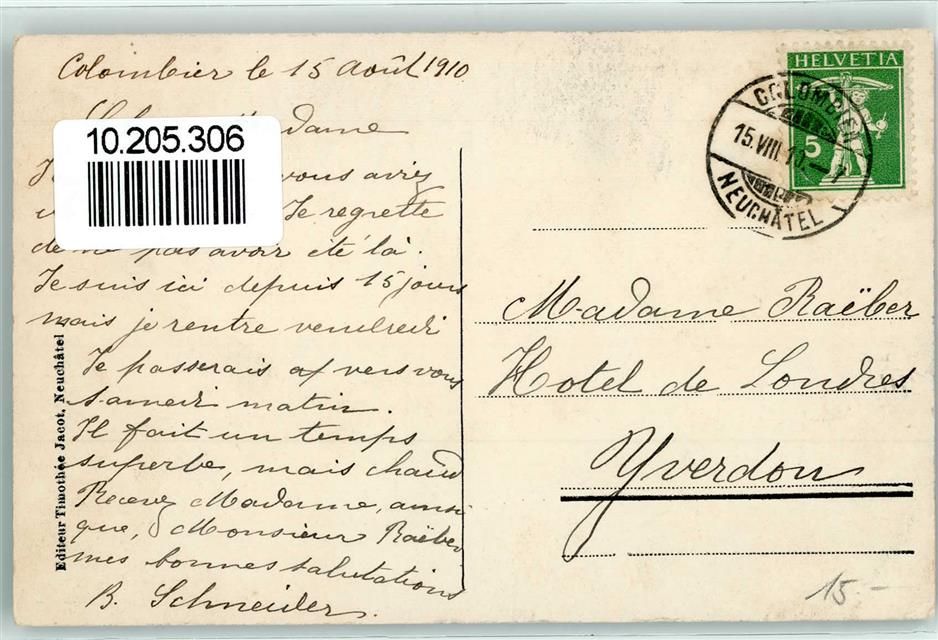 Colombier le 15 août 1910
Madame
10.205.306
vous aviez
Je regrette
de ne pas avoir été là.
Je suis ici depuis 15 jours
mais je rentre vendredi
Je passerais vers vous
samedi matin.
Il fait un temps
superbe, mais chaud
Recevez Madame, ainsi
que, Monsieur Raëber
mes bonnes salutations
B. Schneider.
Editeur Timothée Jacot, Neuchâtel
HELVETIA
5
COLOMBIER
15.VIII.10.
NEUCHÂTEL
Madame Raëber
Hotel de Londres
Yverdon
15.-